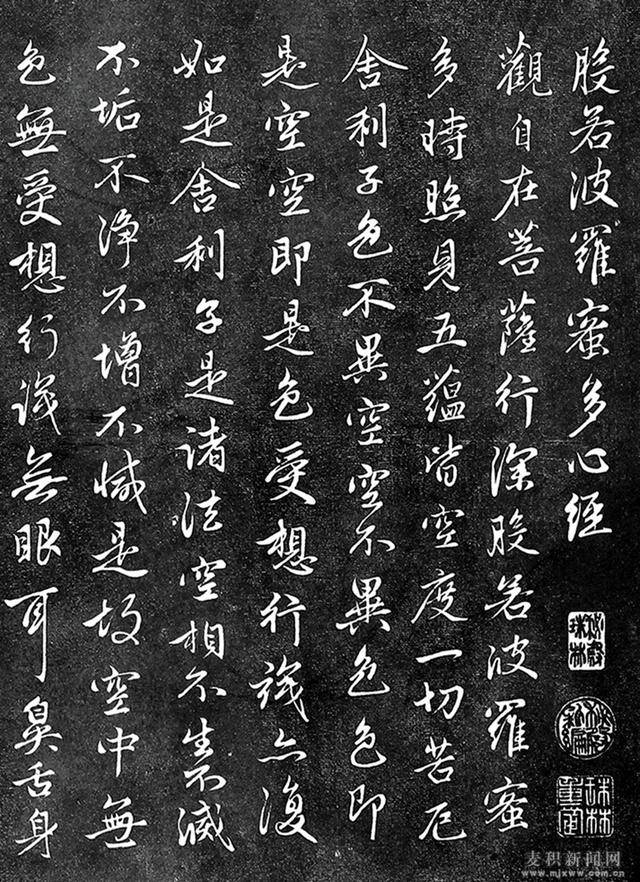 般若波羅蜜多心經
觀自在菩薩行深般若波羅蜜
多時照見五蘊皆空度一切苦厄
舍利子色不異空空不異色色即
是空空即是色受想行識亦復
如是舍利子是諸法空相不生不滅
不垢不淨不增不減是故空中無
色無受想行識無眼耳鼻舌身
秘殿珠林
秘殿新編
珠林重定
麦积新闻网
www.mjxww.com.cn